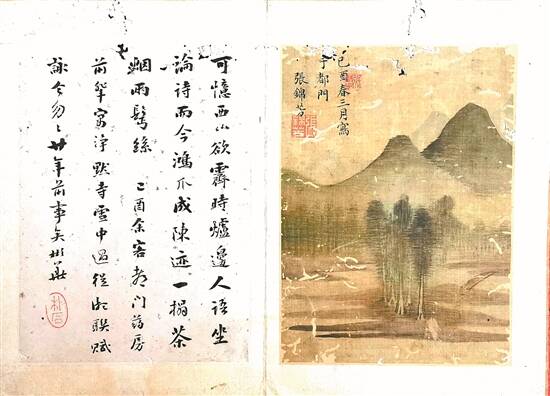 己酉春三月寫
于都門
張錦芳
可憶西山欲霽時爐邊人語坐
論詩而今鴻爪成陳迹一榻茶
烟兩鬢絲 己酉余客都門葯房
前輩寓淨默寺雪中過從聯賦
詠今匆〻廿年前事矣彬華
朴石